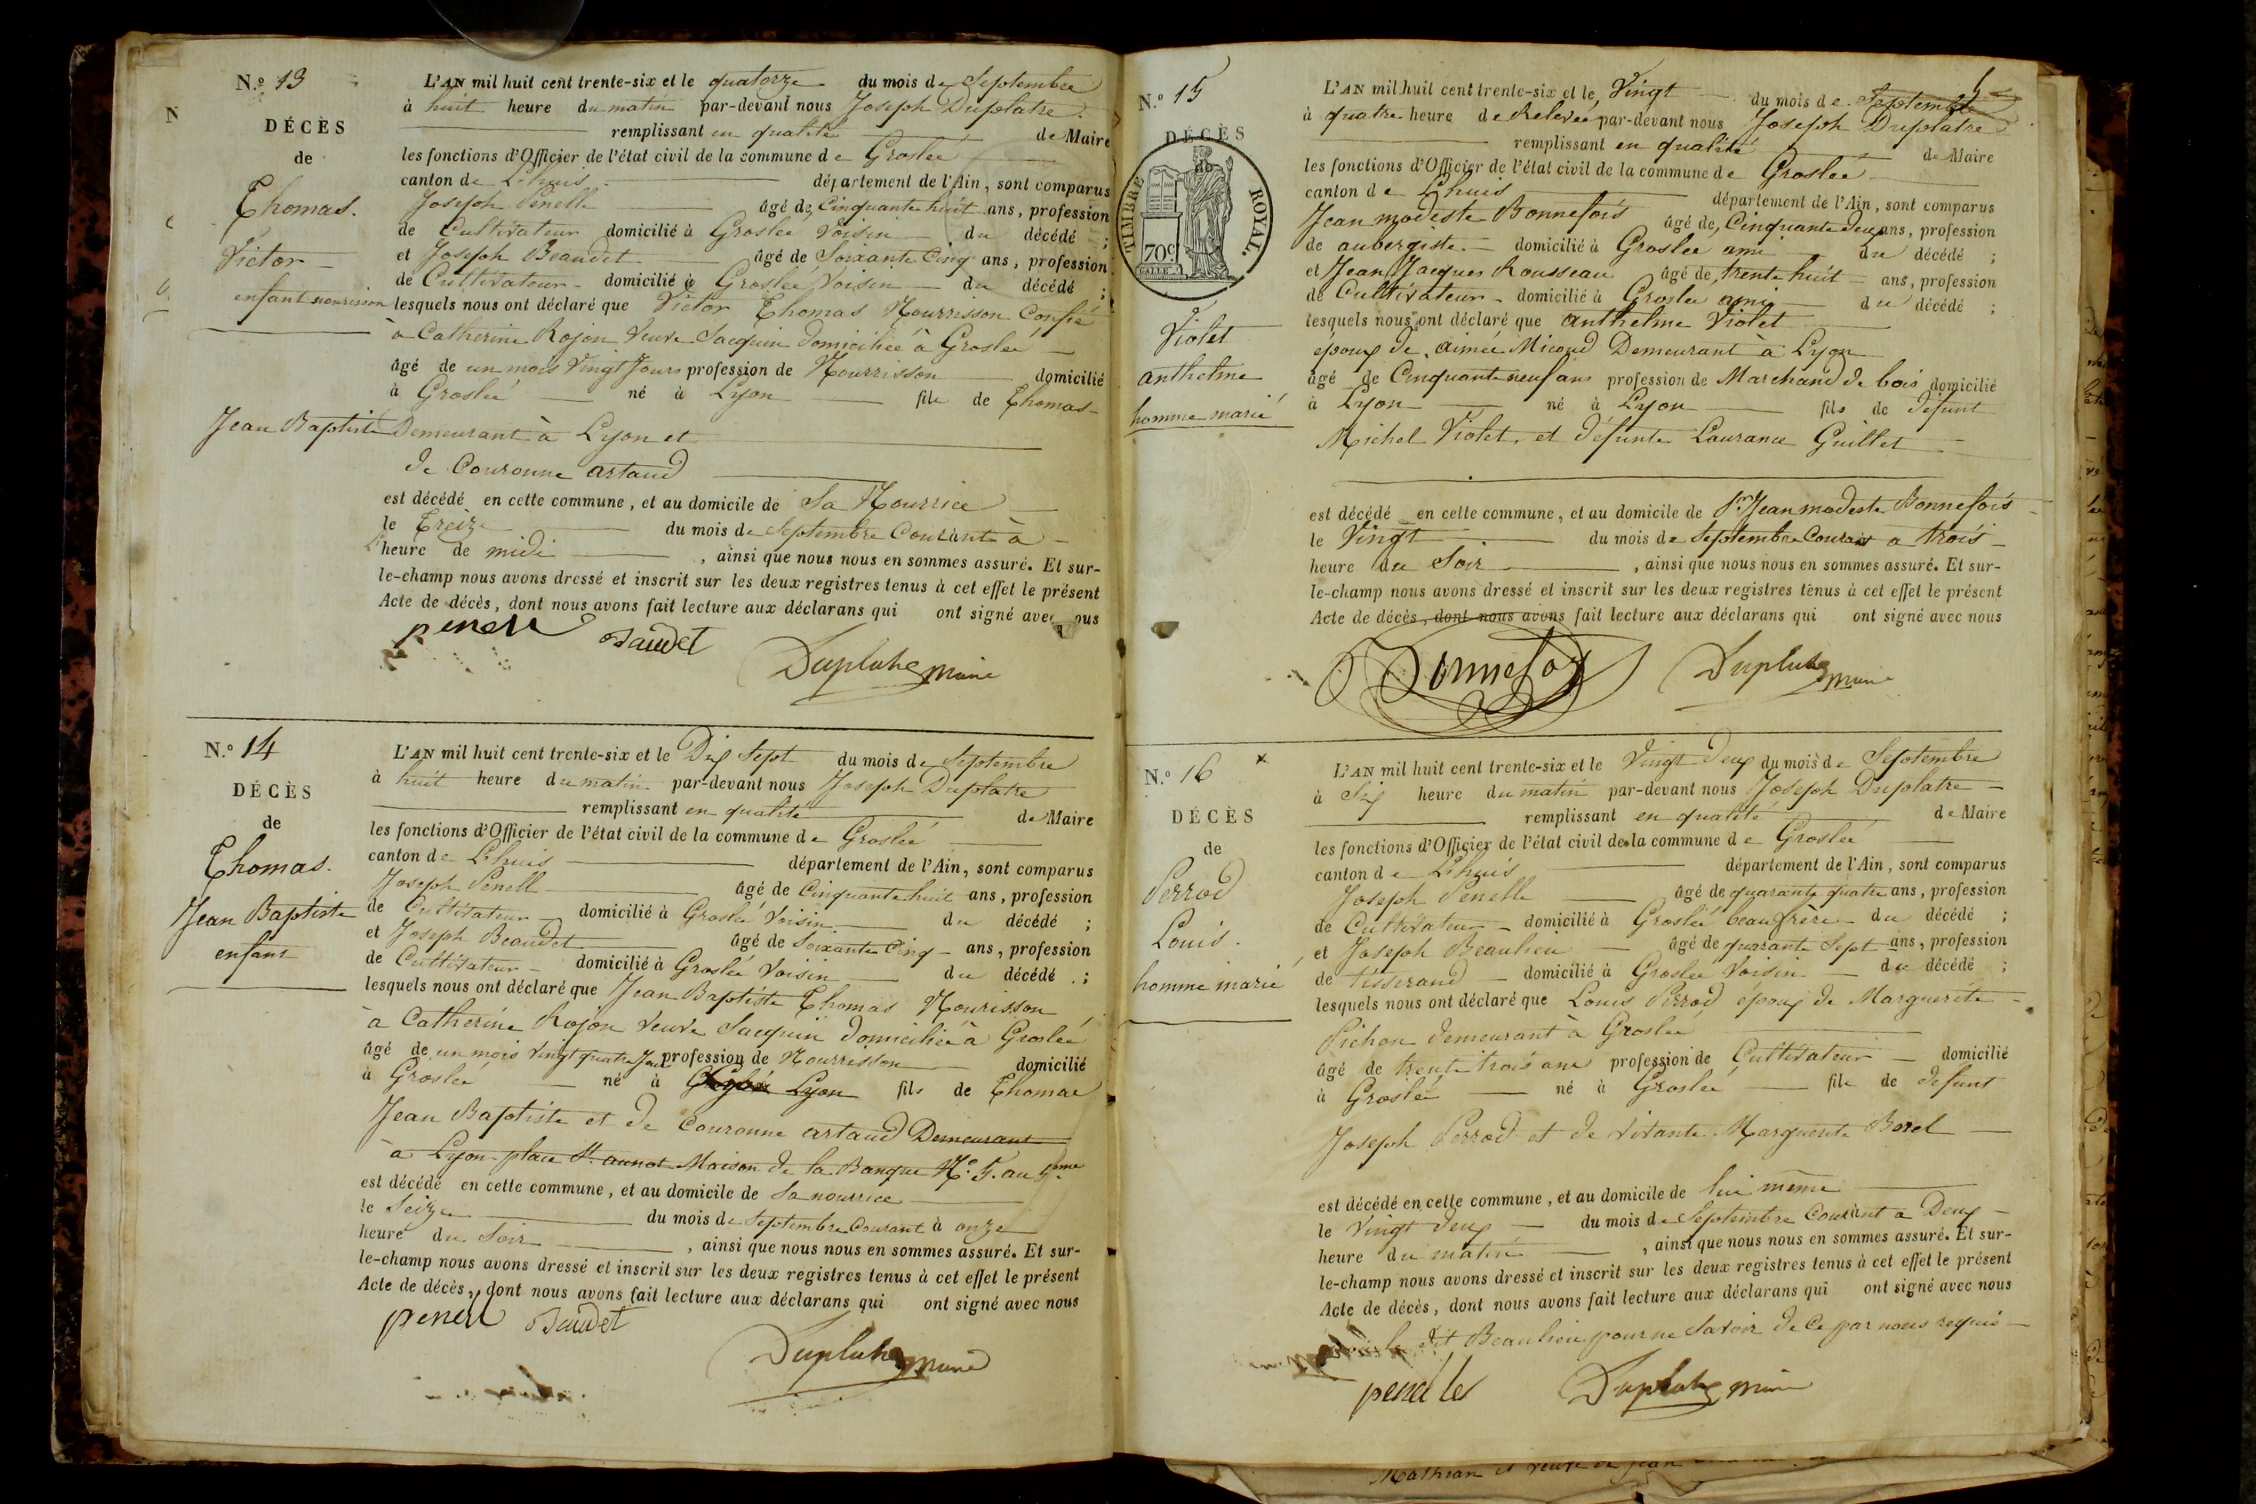 N.o 13
DÉCÈS
de
Thomas.
Victor
enfant nourrisson
L'AN mil huit cent trente-six et le quatorze du mois de Septembre
à huit heure du matin par-devant nous Joseph Duplatre
remplissant en qualité de Maire
les fonctions d'Officier de l'état civil de la commune de Groslée
canton de Lhuis département de l'Ain, sont comparus
Joseph Penelle âgé de Cinquante huit ans, profession
de Cultivateur domicilié à Groslée Voisin du décédé ;
et Joseph Beaudet âgé de Soixante Cinq ans, profession
de Cultivateur domicilié à Groslée Voisin du décédé ;
lesquels nous ont déclaré que Victor Thomas Nourrisson Confié
à Catherine Rojon Veuve Jacquin domiciliée à Groslée
âgé de un mois Vingt Jours profession de Nourrisson domicilié
à Groslée né à Lyon fils de Thomas
Jean Baptiste Demeurant à Lyon et
de Couronne artaud
est décédé en cette commune, et au domicile de Sa Nourrice
le Treize du mois de Septembre Courant à
L'heure de midi , ainsi que nous nous en sommes assuré. Et sur-
le-champ nous avons dressé et inscrit sur les deux registres tenus à cet effet le présent
Acte de décès, dont nous avons fait lecture aux déclarans qui ont signé avec nous
penele Baudet
Duplatre maire
N.o 14
DÉCÈS
de
Thomas.
Jean Baptiste
enfant
L'AN mil huit cent trente-six et le Dix Sept du mois de Septembre
à huit heure du matin par-devant nous Joseph Duplatre
remplissant en qualité de Maire
les fonctions d'Officier de l'état civil de la commune de Groslée
canton de Lhuis département de l'Ain, sont comparus
Joseph Penell âgé de Cinquante huit ans, profession
de Cultivateur domicilié à Groslée Voisin du décédé ;
et Joseph Beaudet âgé de Soixante Cinq ans, profession
de Cultivateur domicilié à Groslée Voisin du décédé ;
lesquels nous ont déclaré que Jean Baptiste Thomas Nourisson
à Catherine Rojon Veuve Jacquin domiciliée à Groslée
âgé de un mois Vingt quatre Jour profession de Nourrisson domicilié
à Groslée né à Lyon fils de Thomas
Jean Baptiste et de Couronne artaud Demeurant
à Lyon place St. Maison de la Banque No. 5. au
est décédé en cette commune, et au domicile de Sa nourrice
le Seize du mois de Septembre Courant à onze
heure du Soir , ainsi que nous nous en sommes assuré. Et sur-
le-champ nous avons dressé et inscrit sur les deux registres tenus à cet effet le présent
Acte de décès, dont nous avons fait lecture aux déclarans qui ont signé avec nous
penell Baudet
Duplatre maire
N.o 15
DÉCÈS
de
TIMBRE ROYAL.
70c
Violet
anthelme
homme marié
L'AN mil huit cent trente-six et le Vingt du mois de Septembre
à quatre heure de Relevée par-devant nous Joseph Duplatre
remplissant en qualité de Maire
les fonctions d'Officier de l'état civil de la commune de Groslée
canton de Lhuis département de l'Ain, sont comparus
Jean modeste Bonnefois âgé de Cinquante deux ans, profession
de aubergiste domicilié à Groslée ami du décédé ;
et Jean Jacques Rousseau âgé de trente huit ans, profession
de Cultivateur domicilié à Groslée ami du décédé ;
lesquels nous ont déclaré que anthelme Violet
époux de aimée Micoud Demeurant à Lyon
âgé de Cinquante neuf ans profession de Marchand de bois domicilié
à Lyon né à Lyon fils de défunt
Michel Violet et défunte Laurance Guillet
est décédé en cette commune, et au domicile de Sr. Jean modeste Bonnefois
le Vingt du mois de Septembre Courant a trois
heure du Soir , ainsi que nous nous en sommes assuré. Et sur-
le-champ nous avons dressé et inscrit sur les deux registres tenus à cet effet le présent
Acte de décès, dont nous avons fait lecture aux déclarans qui ont signé avec nous
Bonnefoy Duplatre maire
N.o 16
DÉCÈS
de
Perrod
Louis.
homme marié
L'AN mil huit cent trente-six et le Vingt deux du mois de Septembre
à Six heure du matin par-devant nous Joseph Duplatre
remplissant en qualité de Maire
les fonctions d'Officier de l'état civil de la commune de Groslée
canton de Lhuis département de l'Ain, sont comparus
Joseph Penelle âgé de quarante quatre ans, profession
de Cultivateur domicilié à Groslée beaufrère du décédé ;
et Joseph Beaulieu âgé de quarante Sept ans, profession
de tisserand domicilié à Groslée Voisin du décédé ;
lesquels nous ont déclaré que Louis Perrod époux de Marguerite
Pichon demeurant à Groslée
âgé de trente trois ans profession de Cultivateur domicilié
à Groslée né à Groslée fils de défunt
Joseph Perrod et de vivante Marguerite Borel
est décédé en cette commune, et au domicile de lui même
le Vingt deux du mois de Septembre Courant a Deux
heure du matin , ainsi que nous nous en sommes assuré. Et sur-
le-champ nous avons dressé et inscrit sur les deux registres tenus à cet effet le présent
Acte de décès, dont nous avons fait lecture aux déclarans qui ont signé avec nous
le dit Beaulieu pour ne Savoir de Ce par nous requis
Duplatre maire